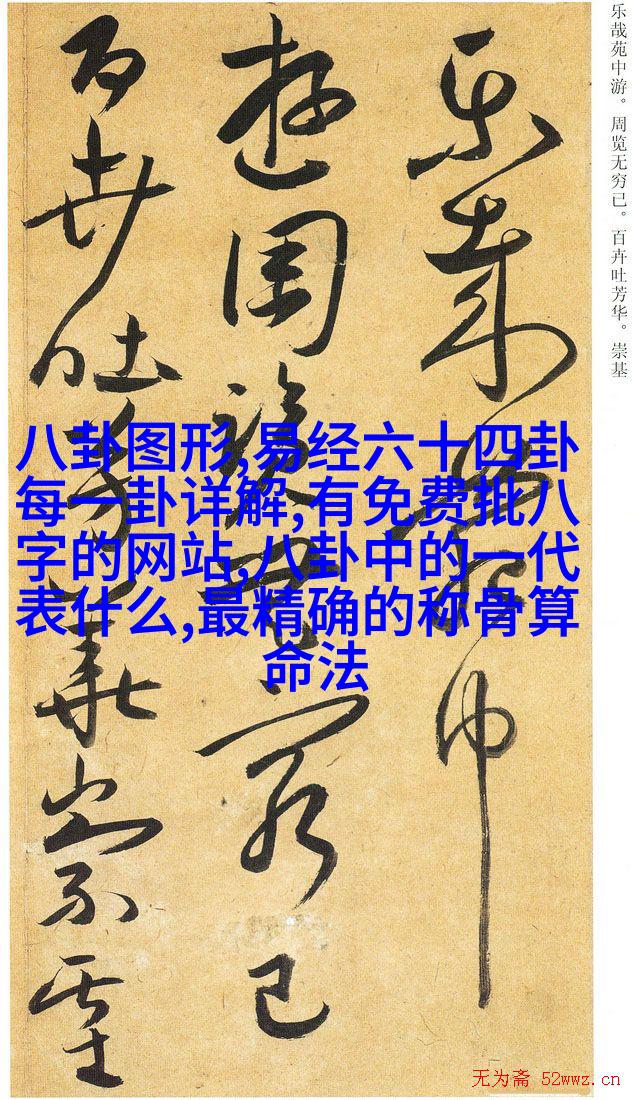 乐哉苑中游。周览无穷已。百卉吐芳华。崇基
乐哉苑中
游周览无穷已
百卉吐芳华崇基
八卦图形,易经六十四卦
每一卦详解,有免费批八
字的网站,八卦中的一代
表什么,最精确的称骨算
命法
无为斋 52wwz.cn